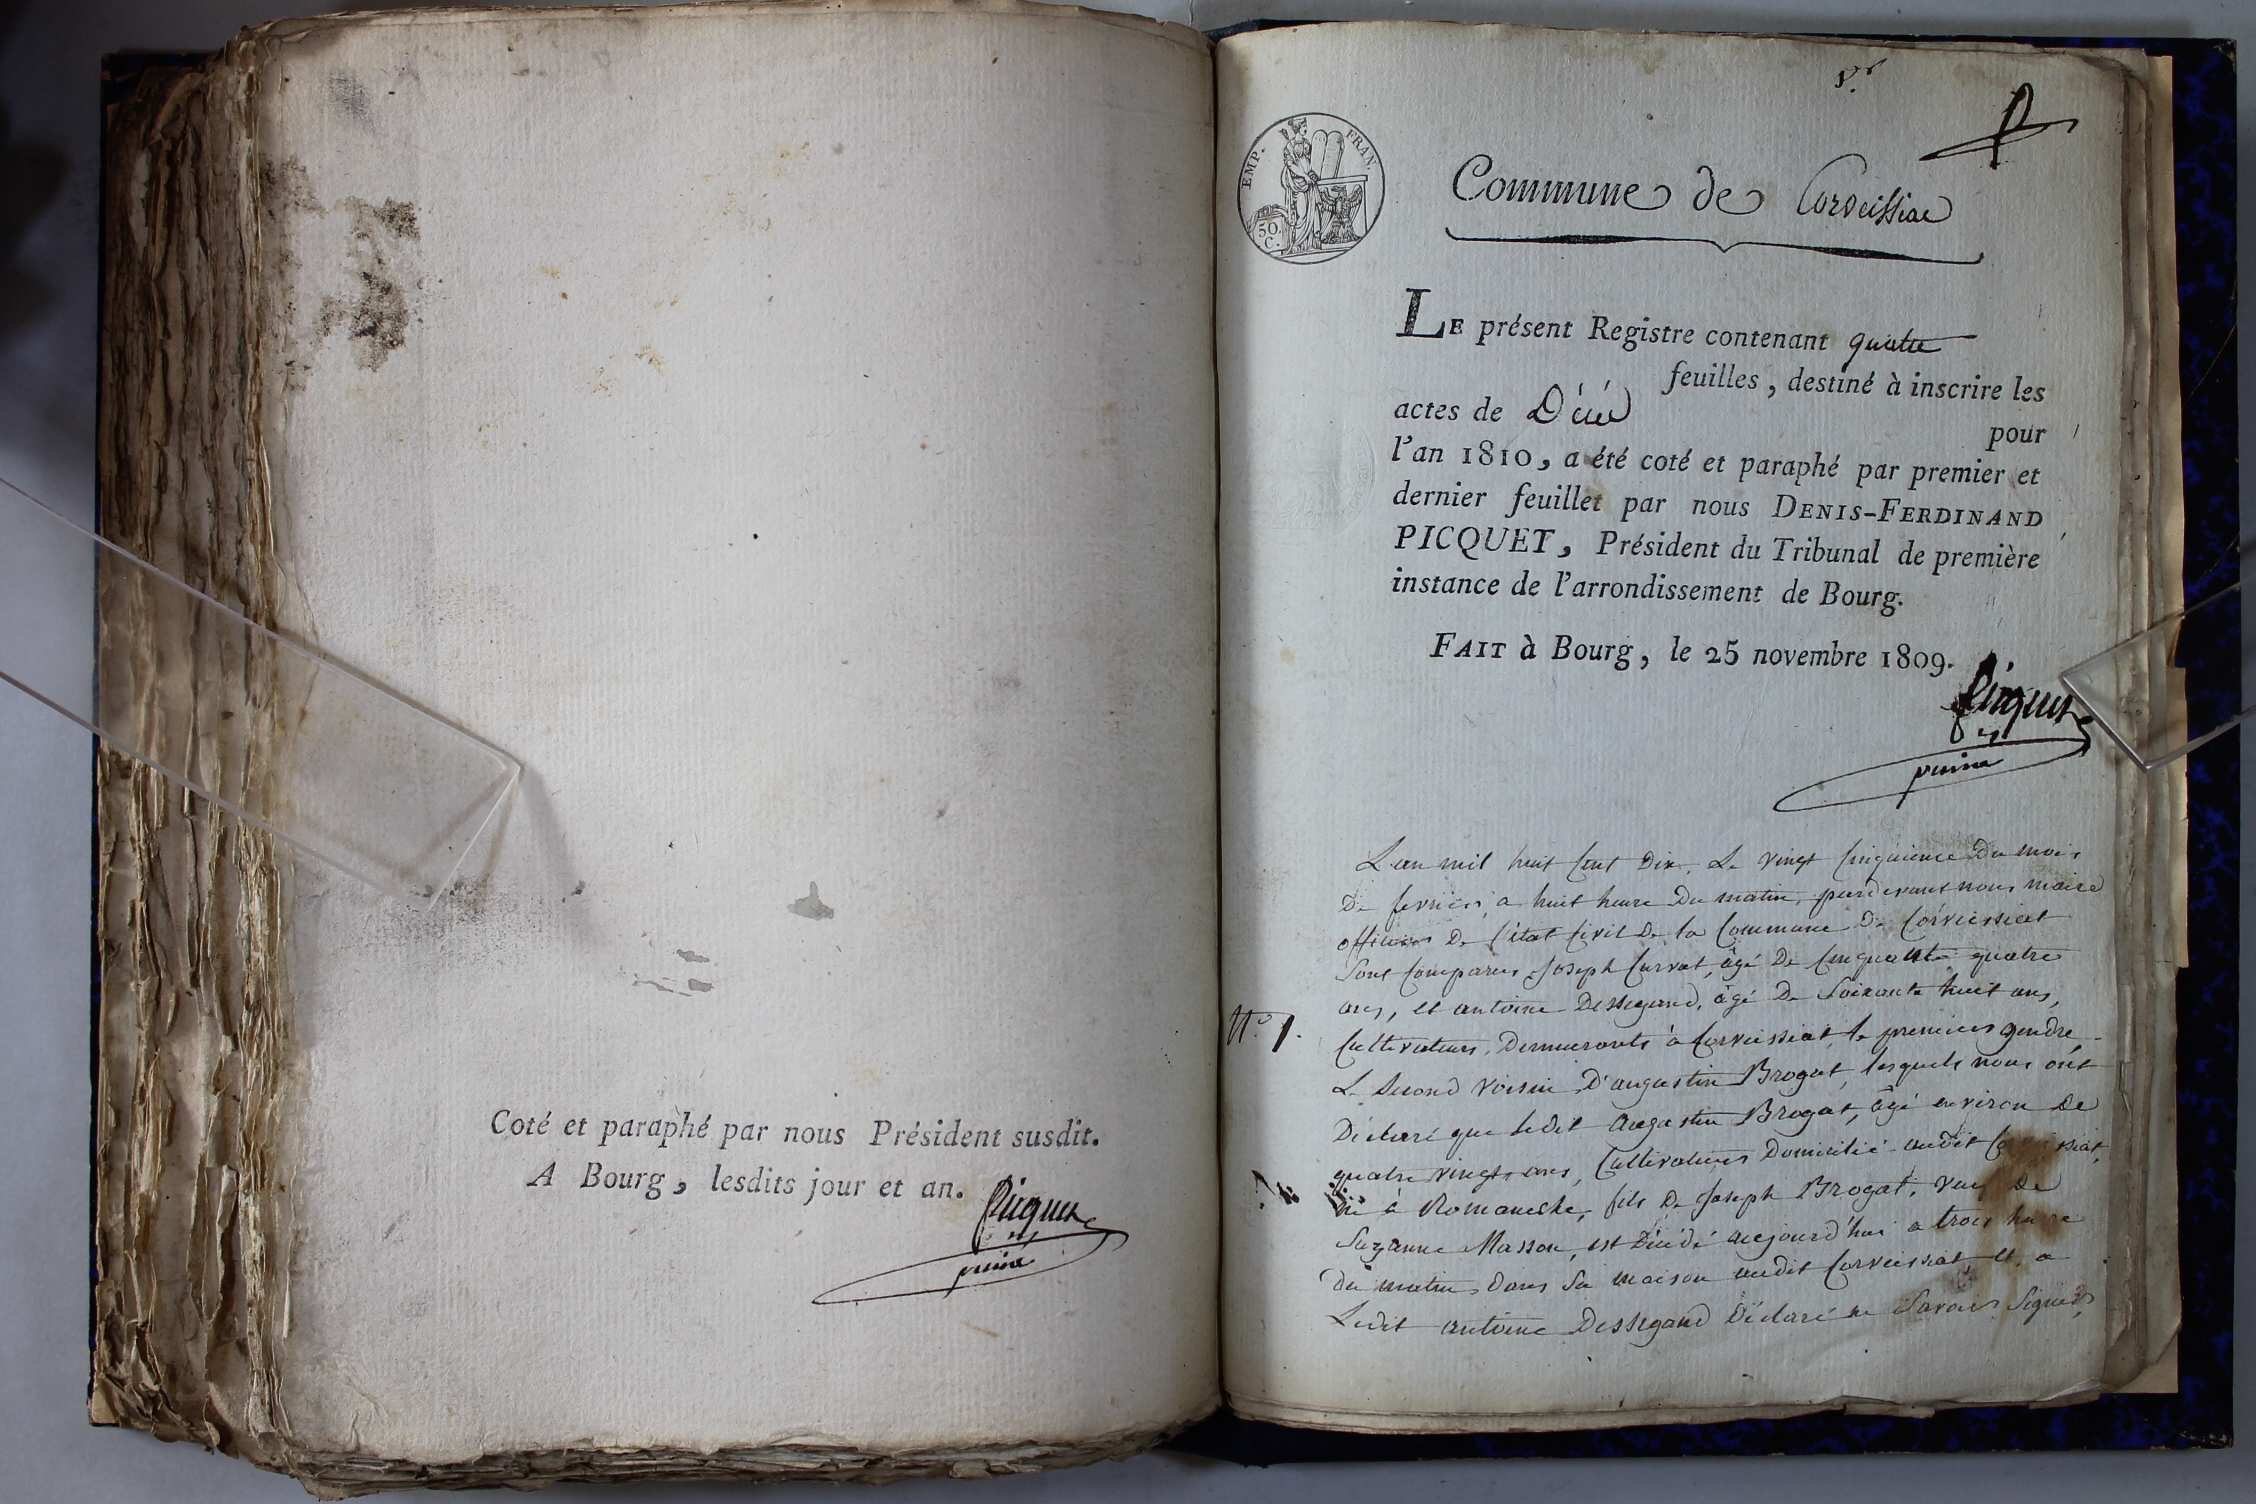 Coté et paraphé par nous Président susdit.
A Bourg, lesdits jour et an.
Picquet
EMP. FRAN.
50.
C.
Commune de Corveissiat
LE présent Registre contenant quatre
feuilles, destiné à inscrire les
actes de Décès
pour
l'an 1810, a été coté et paraphé par premier et
dernier feuillet par nous DENIS-FERDINAND
PICQUET, Président du Tribunal de première
instance de l'arrondissement de Bourg.
FAIT à Bourg, le 25 novembre 1809.
Picquet
L'an mil huit cent dix, le vingt cinquieme du mois
de fevrier, a huit heure du matin, pardevant nous maire
officier de l'état civil de la Commune de Corveissiat
sont comparus Joseph Curvat, âgé de cinquante quatre
ans, et antoine Dessegand, âgé de soixante huit ans,
N.° 1.
Cultivateurs, demeurants à Corveissiat, le premier gendre,
le second voisin d'augustin Brogat, lesquels nous ont
Déclaré que ledit augustin Brogat, âgé environ de
quatre vingts ans, Cultivateur domicilié audit Corveissiat,
né à Romaneche, fils de Joseph Brogat, veuf de
Suzanne Masson, est décédé aujourd'hui a trois heure
du matin, dans sa maison audit Corveissiat, et a
Ledit antoine Dessegand déclaré ne savoir signer,